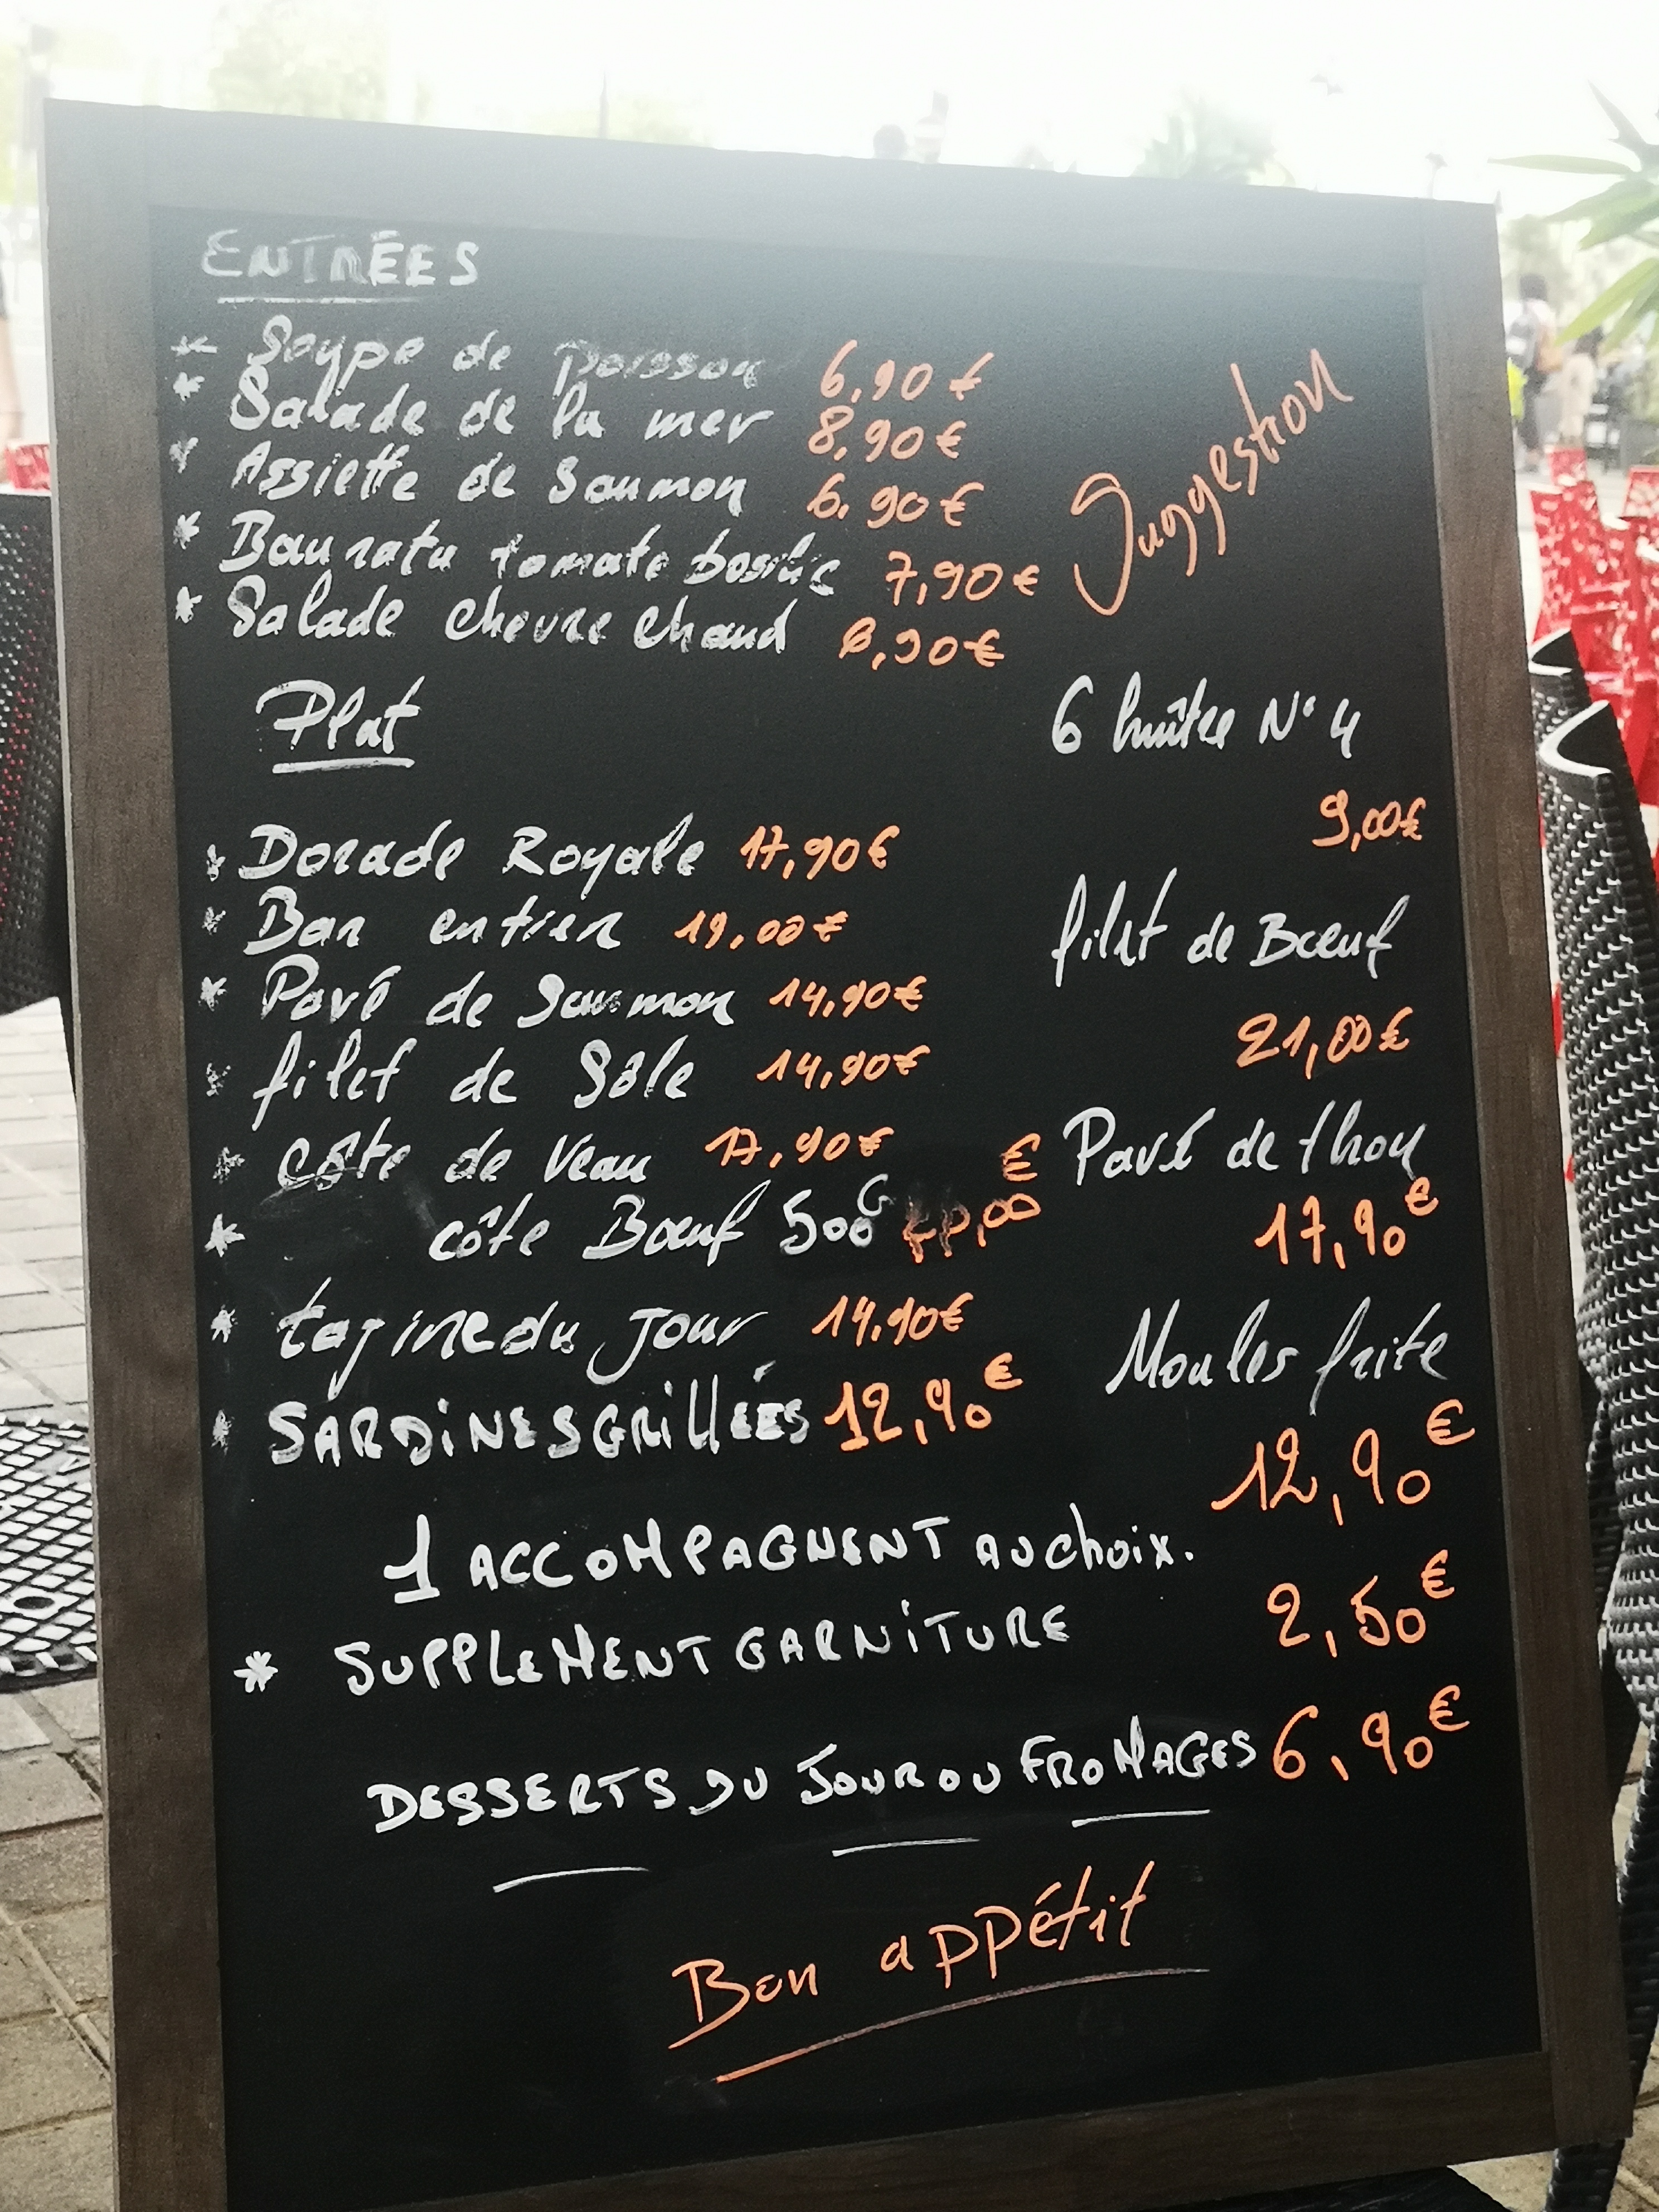 ENTRÉES
* Soupe de poisson 6,90 €
* Salade de la mer 8,90 €
* Assiette de Saumon 6,90 €
* Bauratu tomate 7,90 €
* Salade chevre chaud 8,90 €
Suggestion
Plat
* Dorade Royale 17,90 €
* Bar entier 19,00 €
* Pavé de Saumon 14,90 €
* filet de Sôle 14,90 €
* Côte de Veau 17,90 €
* côte Bœuf 500G €
* tajine du Jour 14,90 €
* SARDiNES GRiLLÉES 12,90 €
6 huître N° 4
9,00 €
filet de Bœuf
21,00 €
Pavé de thon
17,90 €
Moules frite
12,90 €
1 ACCOMPAGNENT AU choix.
* SUPPLEMENT GARNiTURE 2,50 €
DESSERTS DU JOUR OU FROMAGES 6,90 €
Bon appétit